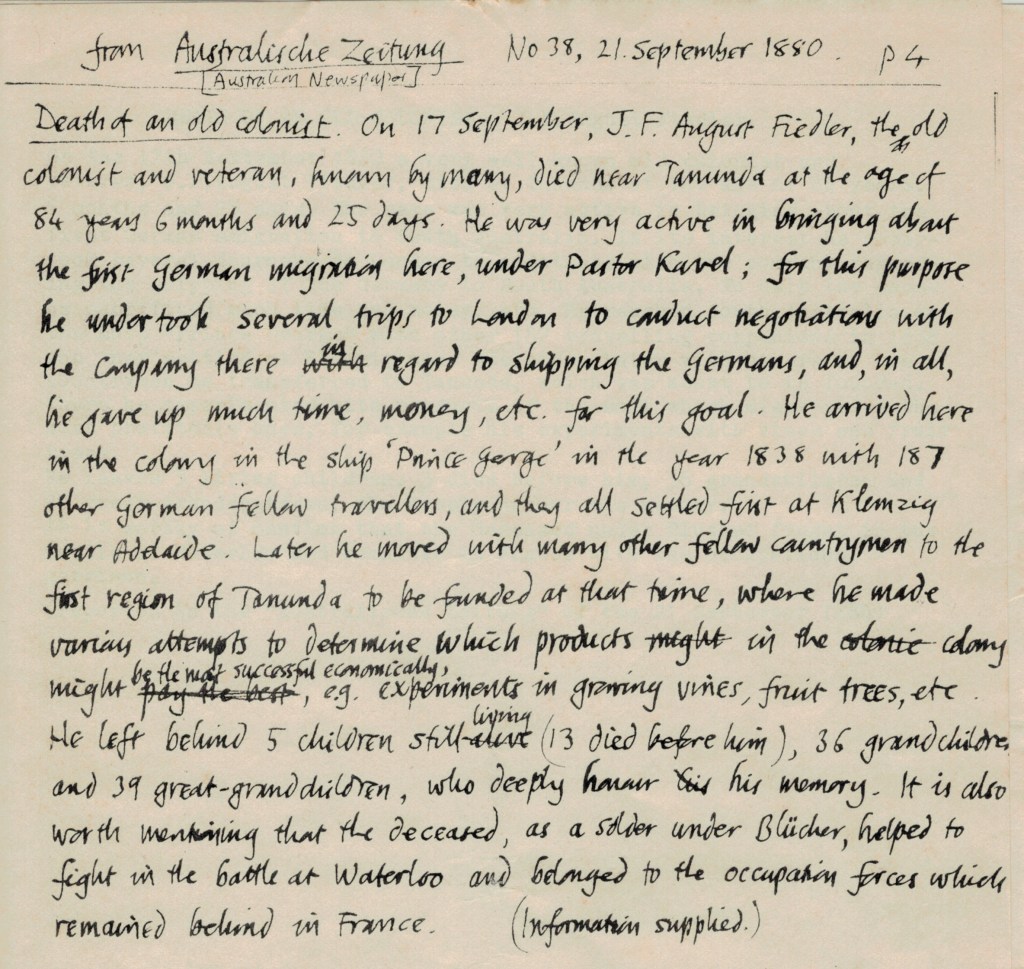 from Australische Zeitung No 38, 21. September 1880. p 4
[Australian Newspaper]
Death of an old colonist. On 17 September, J. F. August Fiedler, the old
colonist and veteran, known by many, died near Tanunda at the age of
84 years 6 months and 25 days. He was very active in bringing about
the first German migration here, under Pastor Kavel; for this purpose
he undertook several trips to London to conduct negotiations with
the Company there with in regard to shipping the Germans, and, in all,
he gave up much time, money, etc. for this goal. He arrived here
in the colony in the ship 'Prince George' in the year 1838 with 187
other German fellow travellers, and they all settled first at Klemzig
near Adelaide. Later he moved with many other fellow countrymen to the
first region of Tanunda to be funded at that time, where he made
various attempts to determine which products might in the colonie colony
might pay the best be the most successful economically, e.g. experiments in growing vines, fruit trees, etc.
He left behind 5 children still alive living (13 died before him), 36 grandchildren
and 39 great-grandchildren, who deeply honour his his memory. It is also
worth mentioning that the deceased, as a solder under Blücher, helped to
fight in the battle at Waterloo and belonged to the occupation forces which
remained behind in France. (Information supplied.)